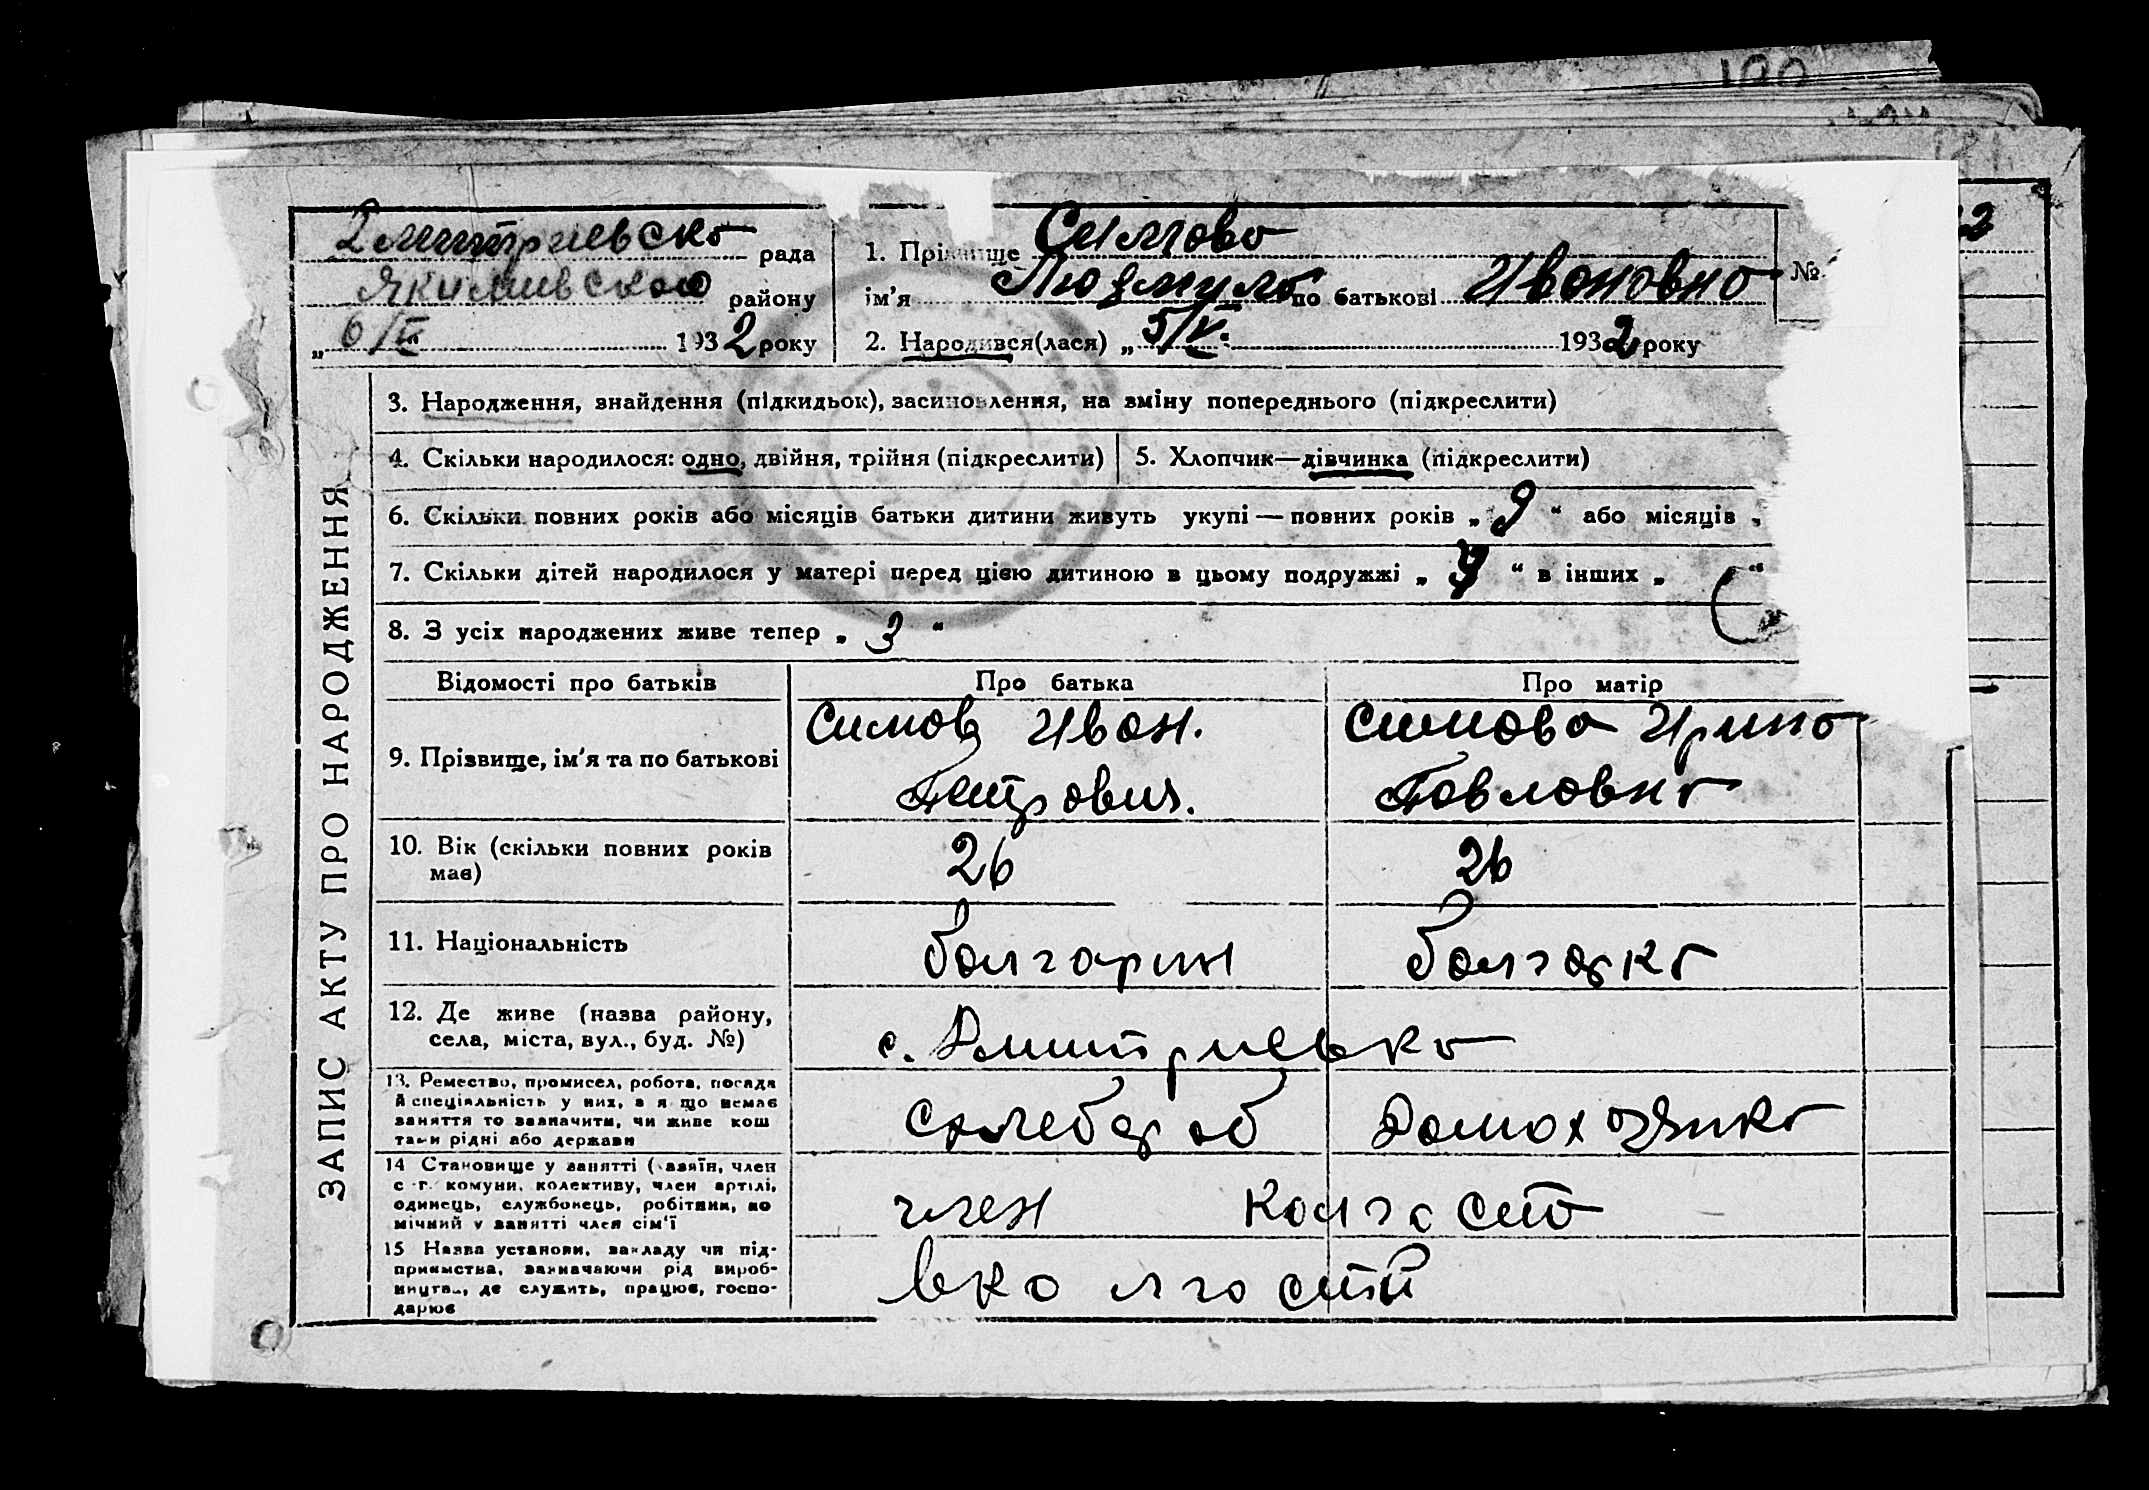 Дмитриевска рада
Якимивского району
„ 6/V 1932 року
1. Прізвище Симова
ім'я Людмила по батькові Ивановна
№
2. Народився(лася) „ 5/V. 1932 року
ЗАПИС АКТУ ПРО НАРОДЖЕННЯ
3. Народження, знайдення (підкидьок), засиновлення, на зміну попереднього (підкреслити)
4. Скільки народилося: одно, двійня, трійня (підкреслити)
5. Хлопчик—дівчинка (підкреслити)
6. Скільки повних років або місяців батьки дитини живуть укупі — повних років „ 9 “ або місяців „
7. Скільки дітей народилося у матері перед цією дитиною в цьому подружжі „ “ в інших „ “
8. З усіх народжених живе тепер „ 3 “
Відомості про батьків
Про батька
Про матір
9. Прізвище, ім'я та по батькові
Симов Иван.
Петрович.
Симова Ирина
Павловна
10. Вік (скільки повних років
має)
26
26
11. Національність
болгарин
болгарка
12. Де живе (назва району,
села, міста, вул., буд. №)
с. Дмитриевка
13. Ремество, промисел, робота, посада
й спеціяльність у них, а я що немає
заняття то зазначити, чи живе кош
тами рідні або держави
хлебороб
домохозяика
14 Становище у занятті (хазяїн, член
с.-г. комуни, колективу, член артілі,
одинець, службовець, робітник, по
мічний у занятті член сім'ї
член колгоспа
15 Назва установи, закладу чи під-
приємства, зазначаючи рід вироб-
ництва, де служить, працює, госпо-
дарює